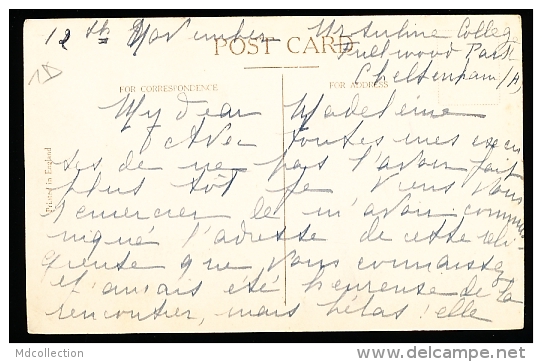 12th November Ursuline College
POST CARD
Pullwood Park
Cheltenham
FOR CORRESPONDENCE FOR ADDRESS
My dear Madeleine
Avec toutes mes excu
ses de ne pas l'avoir fait
plus tôt je viens vous
remercier de m'avoir commu-
niqué l'adresse de cette reli-
gieuse que vous connaissez
et aurais été heureuse de la
rencontrer, mais hélas! elle
Printed in England
Mdcollection
http://www.delcampe.net